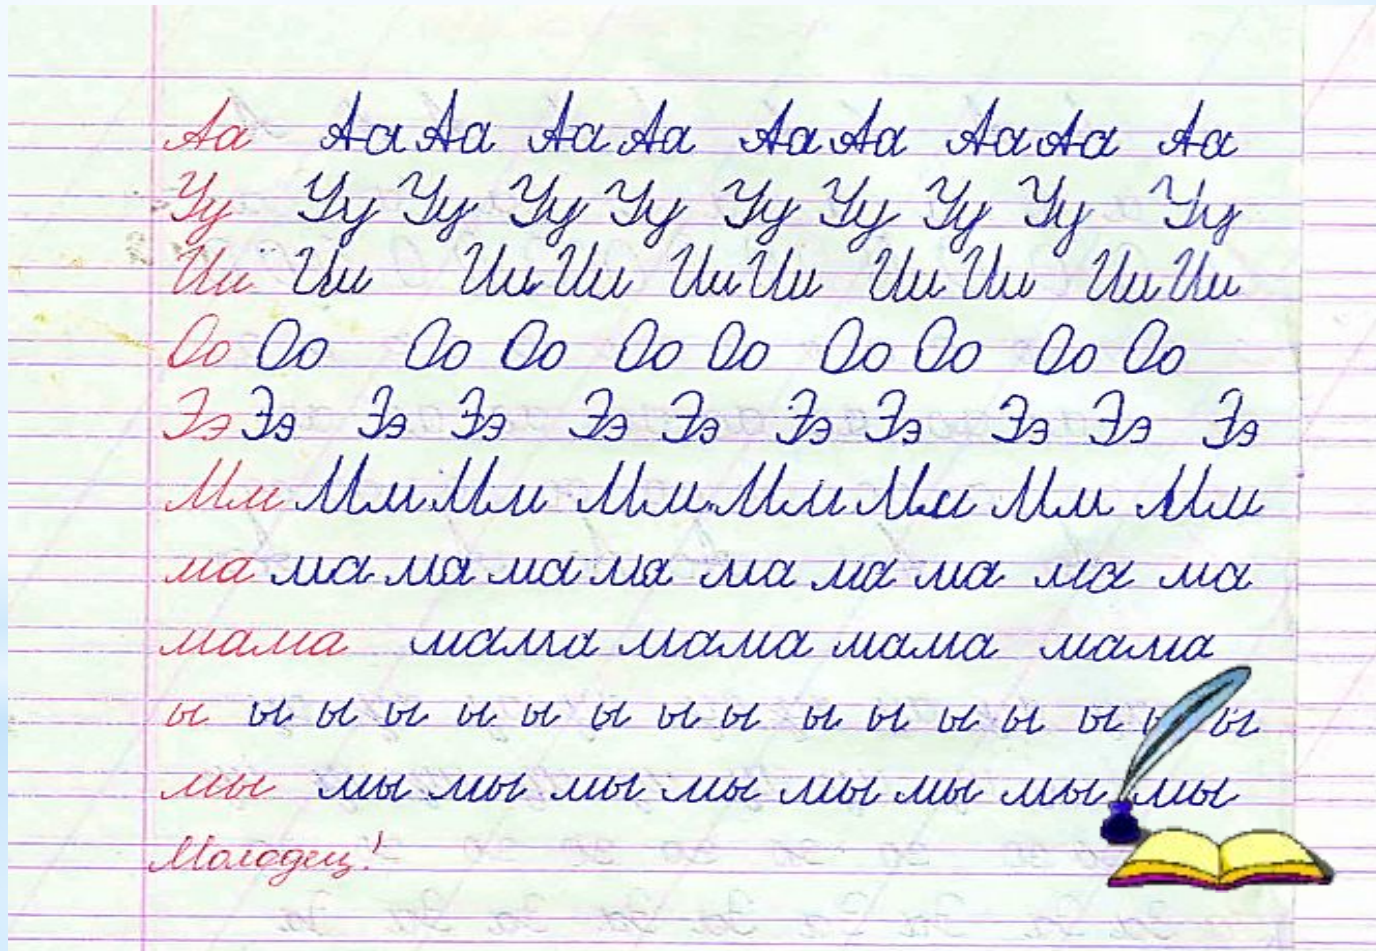 Аа Аа Аа Аа Аа Аа Аа Аа Аа Аа
Уу Уу Уу Уу Уу Уу Уу Уу Уу Уу
Ии Ии Ии Ии Ии Ии Ии Ии Ии Ии
Оо Оо Оо Оо Оо Оо Оо Оо Оо Оо
Ээ Ээ Ээ Ээ Ээ Ээ Ээ Ээ Ээ Ээ Ээ
Мм Мм Мм Мм Мм Мм Мм Мм
ма ма ма ма ма ма ма ма ма ма
мама мама мама мама мама
ы ы ы ы ы ы ы ы ы ы ы ы ы ы ы ы
мы мы мы мы мы мы мы мы мы
Молодец!